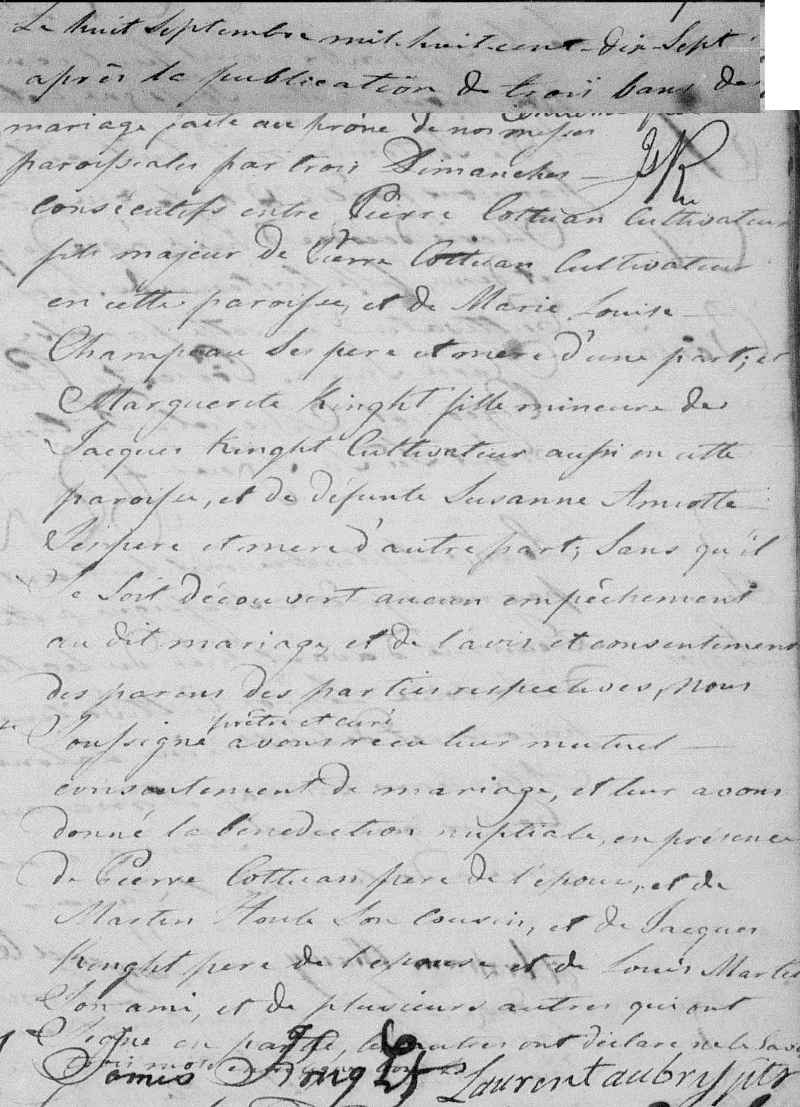 Le huit Septembre mil-huit-cent-dix-Sept
après la publication de trois bans de
mariage faite au prône de nos messes
paroissiales par trois Dimanches
consecutifs entre Pierre Cottuan Cultivateur
fils majeur de Pierre Cottuan Cultivateur
en cette paroisse, et de Marie Louise
Champeau Ses pere et mere d'une part; et
Marguerite Kinght fille mineure de
Jacques Kinght Cultivateur aussi en cette
paroisse, et de défunte Susanne Amiotte
Ses pere et mere d'autre part; Sans qu'il
Se Soit découvert aucun empêchement
au dit mariage, et de l'avis et consentement
des parens des parties respectives, Nous
prêtre et curé
Soussigné avons recu leur mutuel
consentement de mariage, et leur avons
donné la bénédiction nuptiale, en présence
de Pierre Cottuan pere de l'epoux, et de
Martin Houle Son cousin, et de Jacques
Kinght pere de l'epouse et de Louis Martel
Son ami, et de plusieurs autres qui ont
Signé en partie, les autres ont déclaré ne le Savoir
James
Laurent aubry ptr